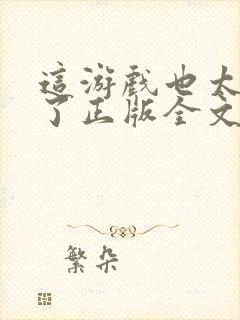 這游戲也太
了正版全文
繁朵